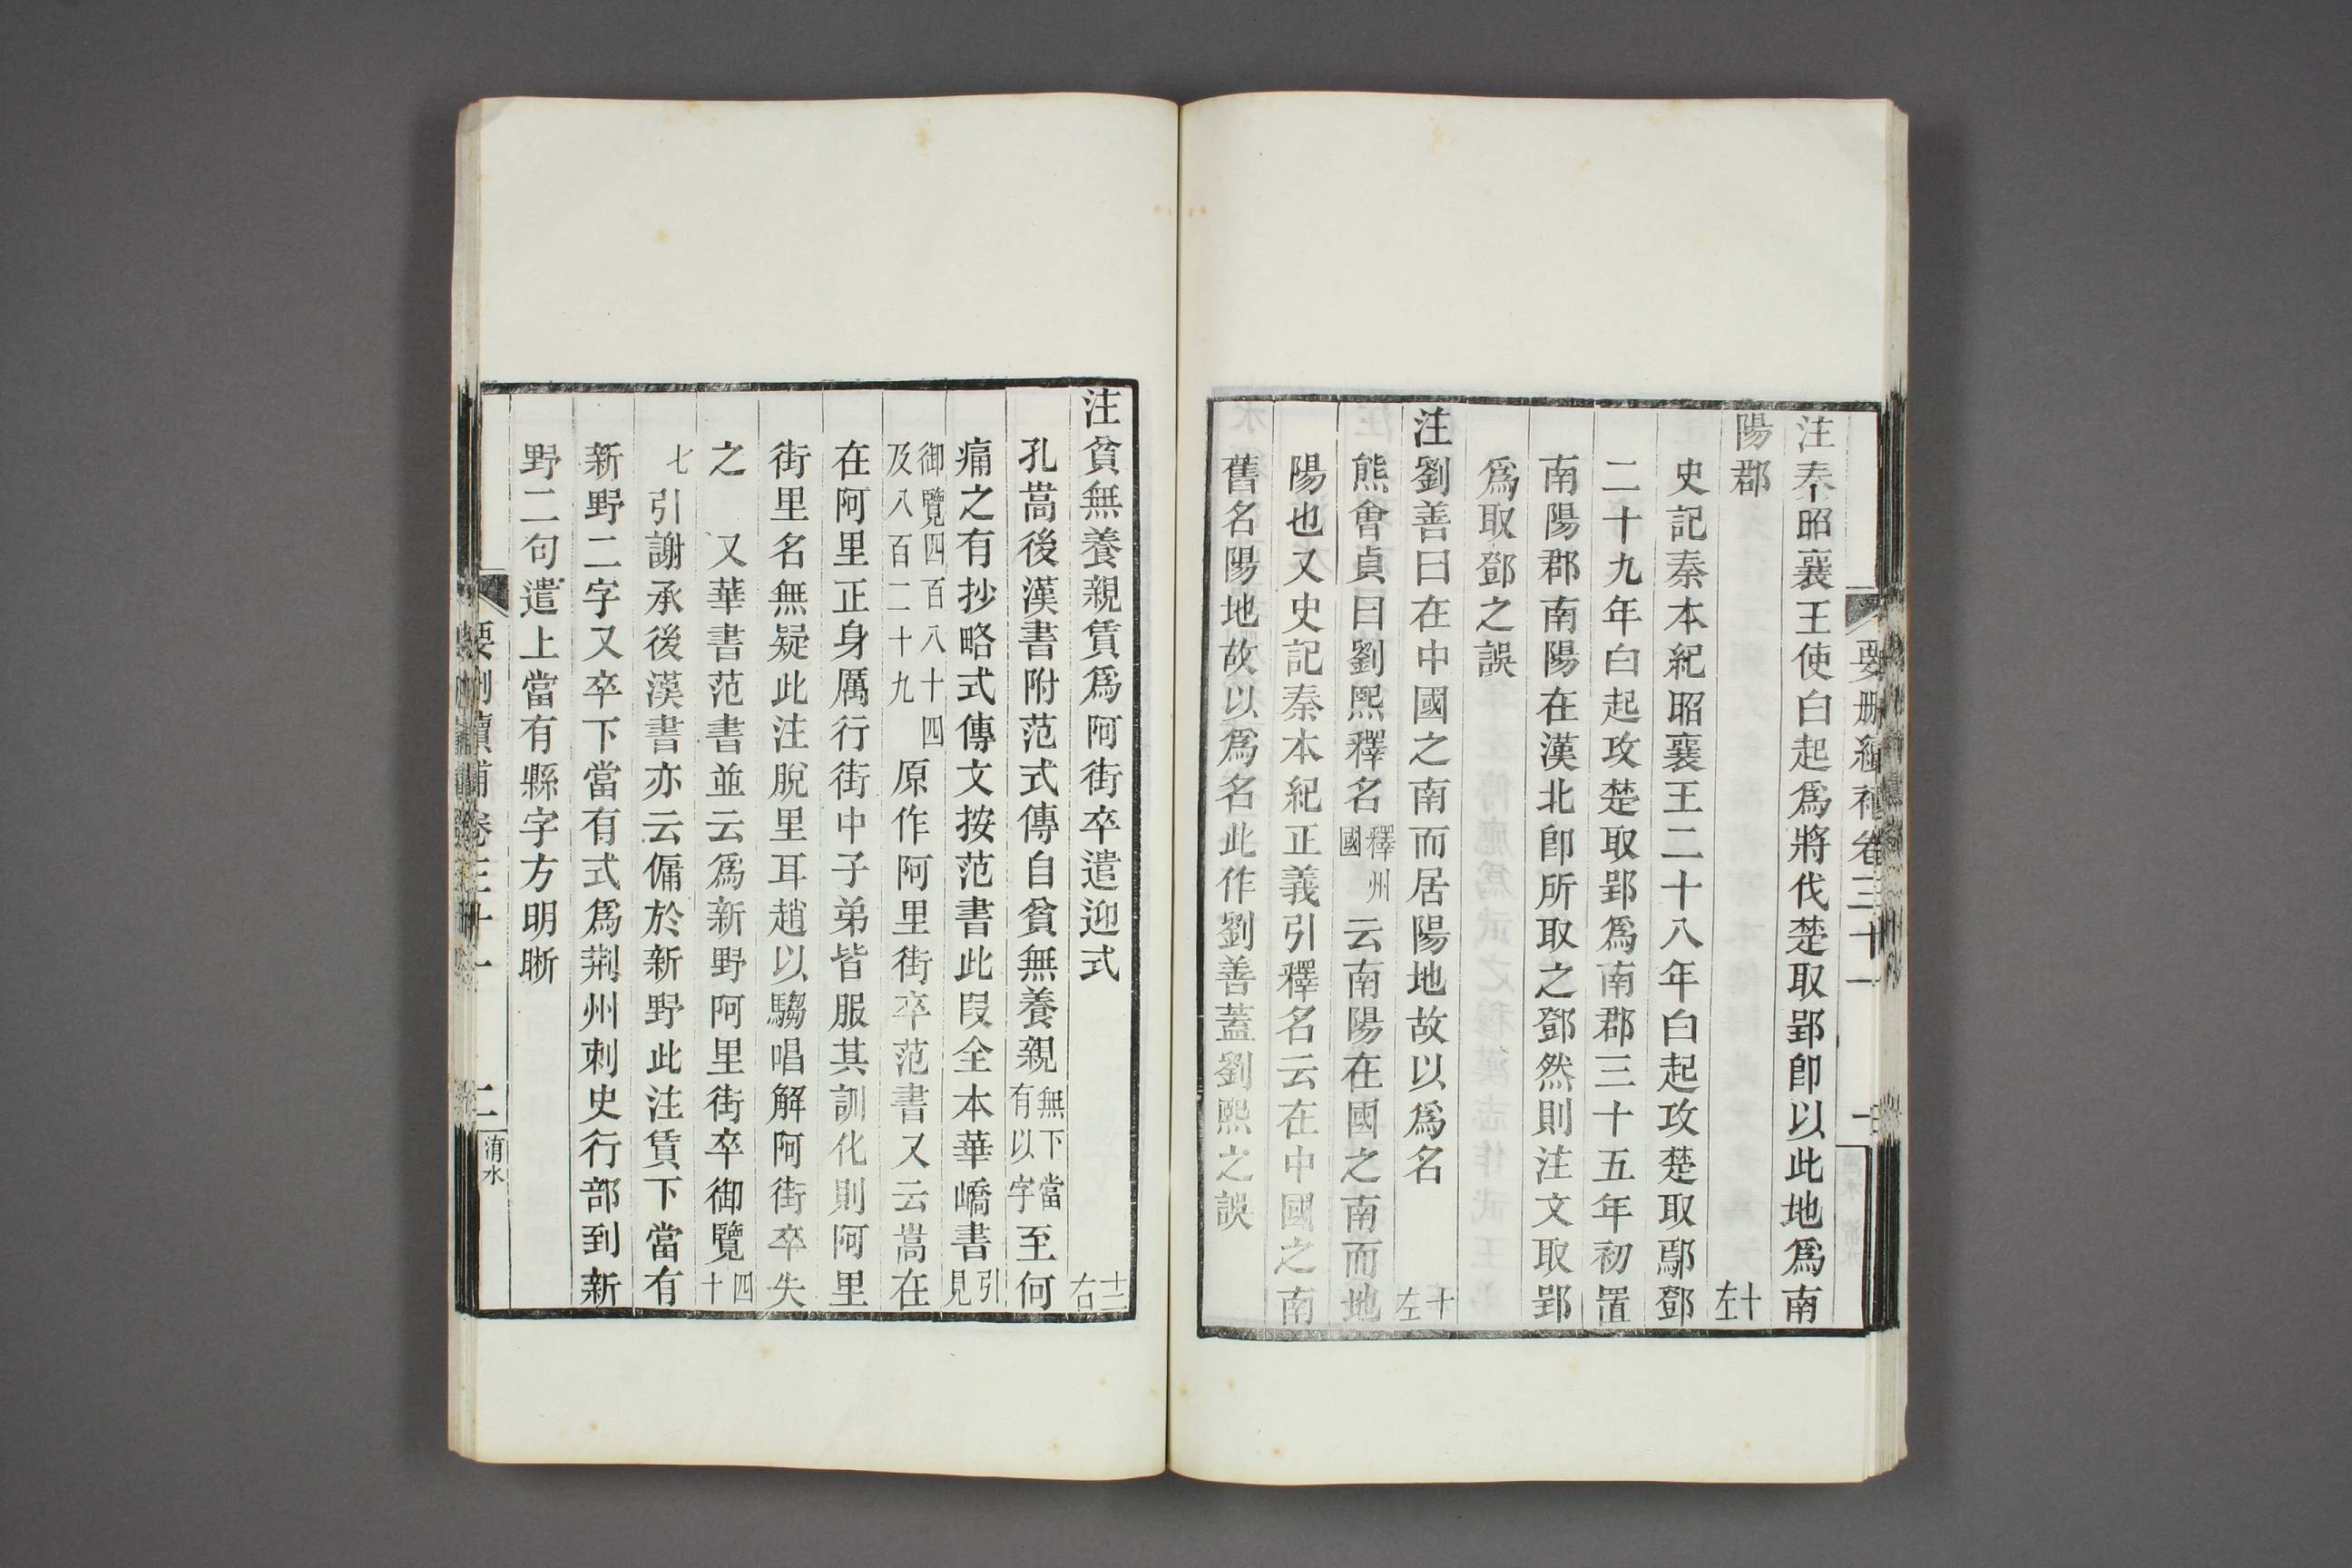 要刪續補卷三十一
注秦昭襄王使白起爲將伐楚取郢卽以此地爲南
陽郡 十左
史記秦本紀昭襄王二十八年白起攻楚取鄢鄧
二十九年白起攻楚取郢爲南郡三十五年初置
南陽郡南陽在漢北卽所取之鄧然則注文取郢
爲取鄧之誤
注劉善曰在中國之南而居陽地故以爲名 十左
熊會貞曰劉熙釋名釋州國云南陽在國之南而地
陽也又史記秦本紀正義引釋名云在中國之南
舊名陽地故以爲名此作劉善蓋劉熙之誤
注貧無養親賃爲阿街卒遣迎式 十二右
孔嵩後漢書附范式傳自貧無養親無下當有以字至何
痛之有抄略式傳文按范書此段全本華嶠書引見
御覽四百八十四及八百二十九原作阿里街卒范書又云嵩在
在阿里正身厲行街中子弟皆服其訓化則阿里
街里名無疑此注脫里耳趙以騶唱解阿街卒失
之 又華書范書並云爲新野阿里街卒御覽四十
七引謝承後漢書亦云傭於新野此注賃下當有
新野二字又卒下當有式爲荆州刺史行部到新
野二句遣上當有縣字方明晰
要刪續補卷三十一 二 淯水